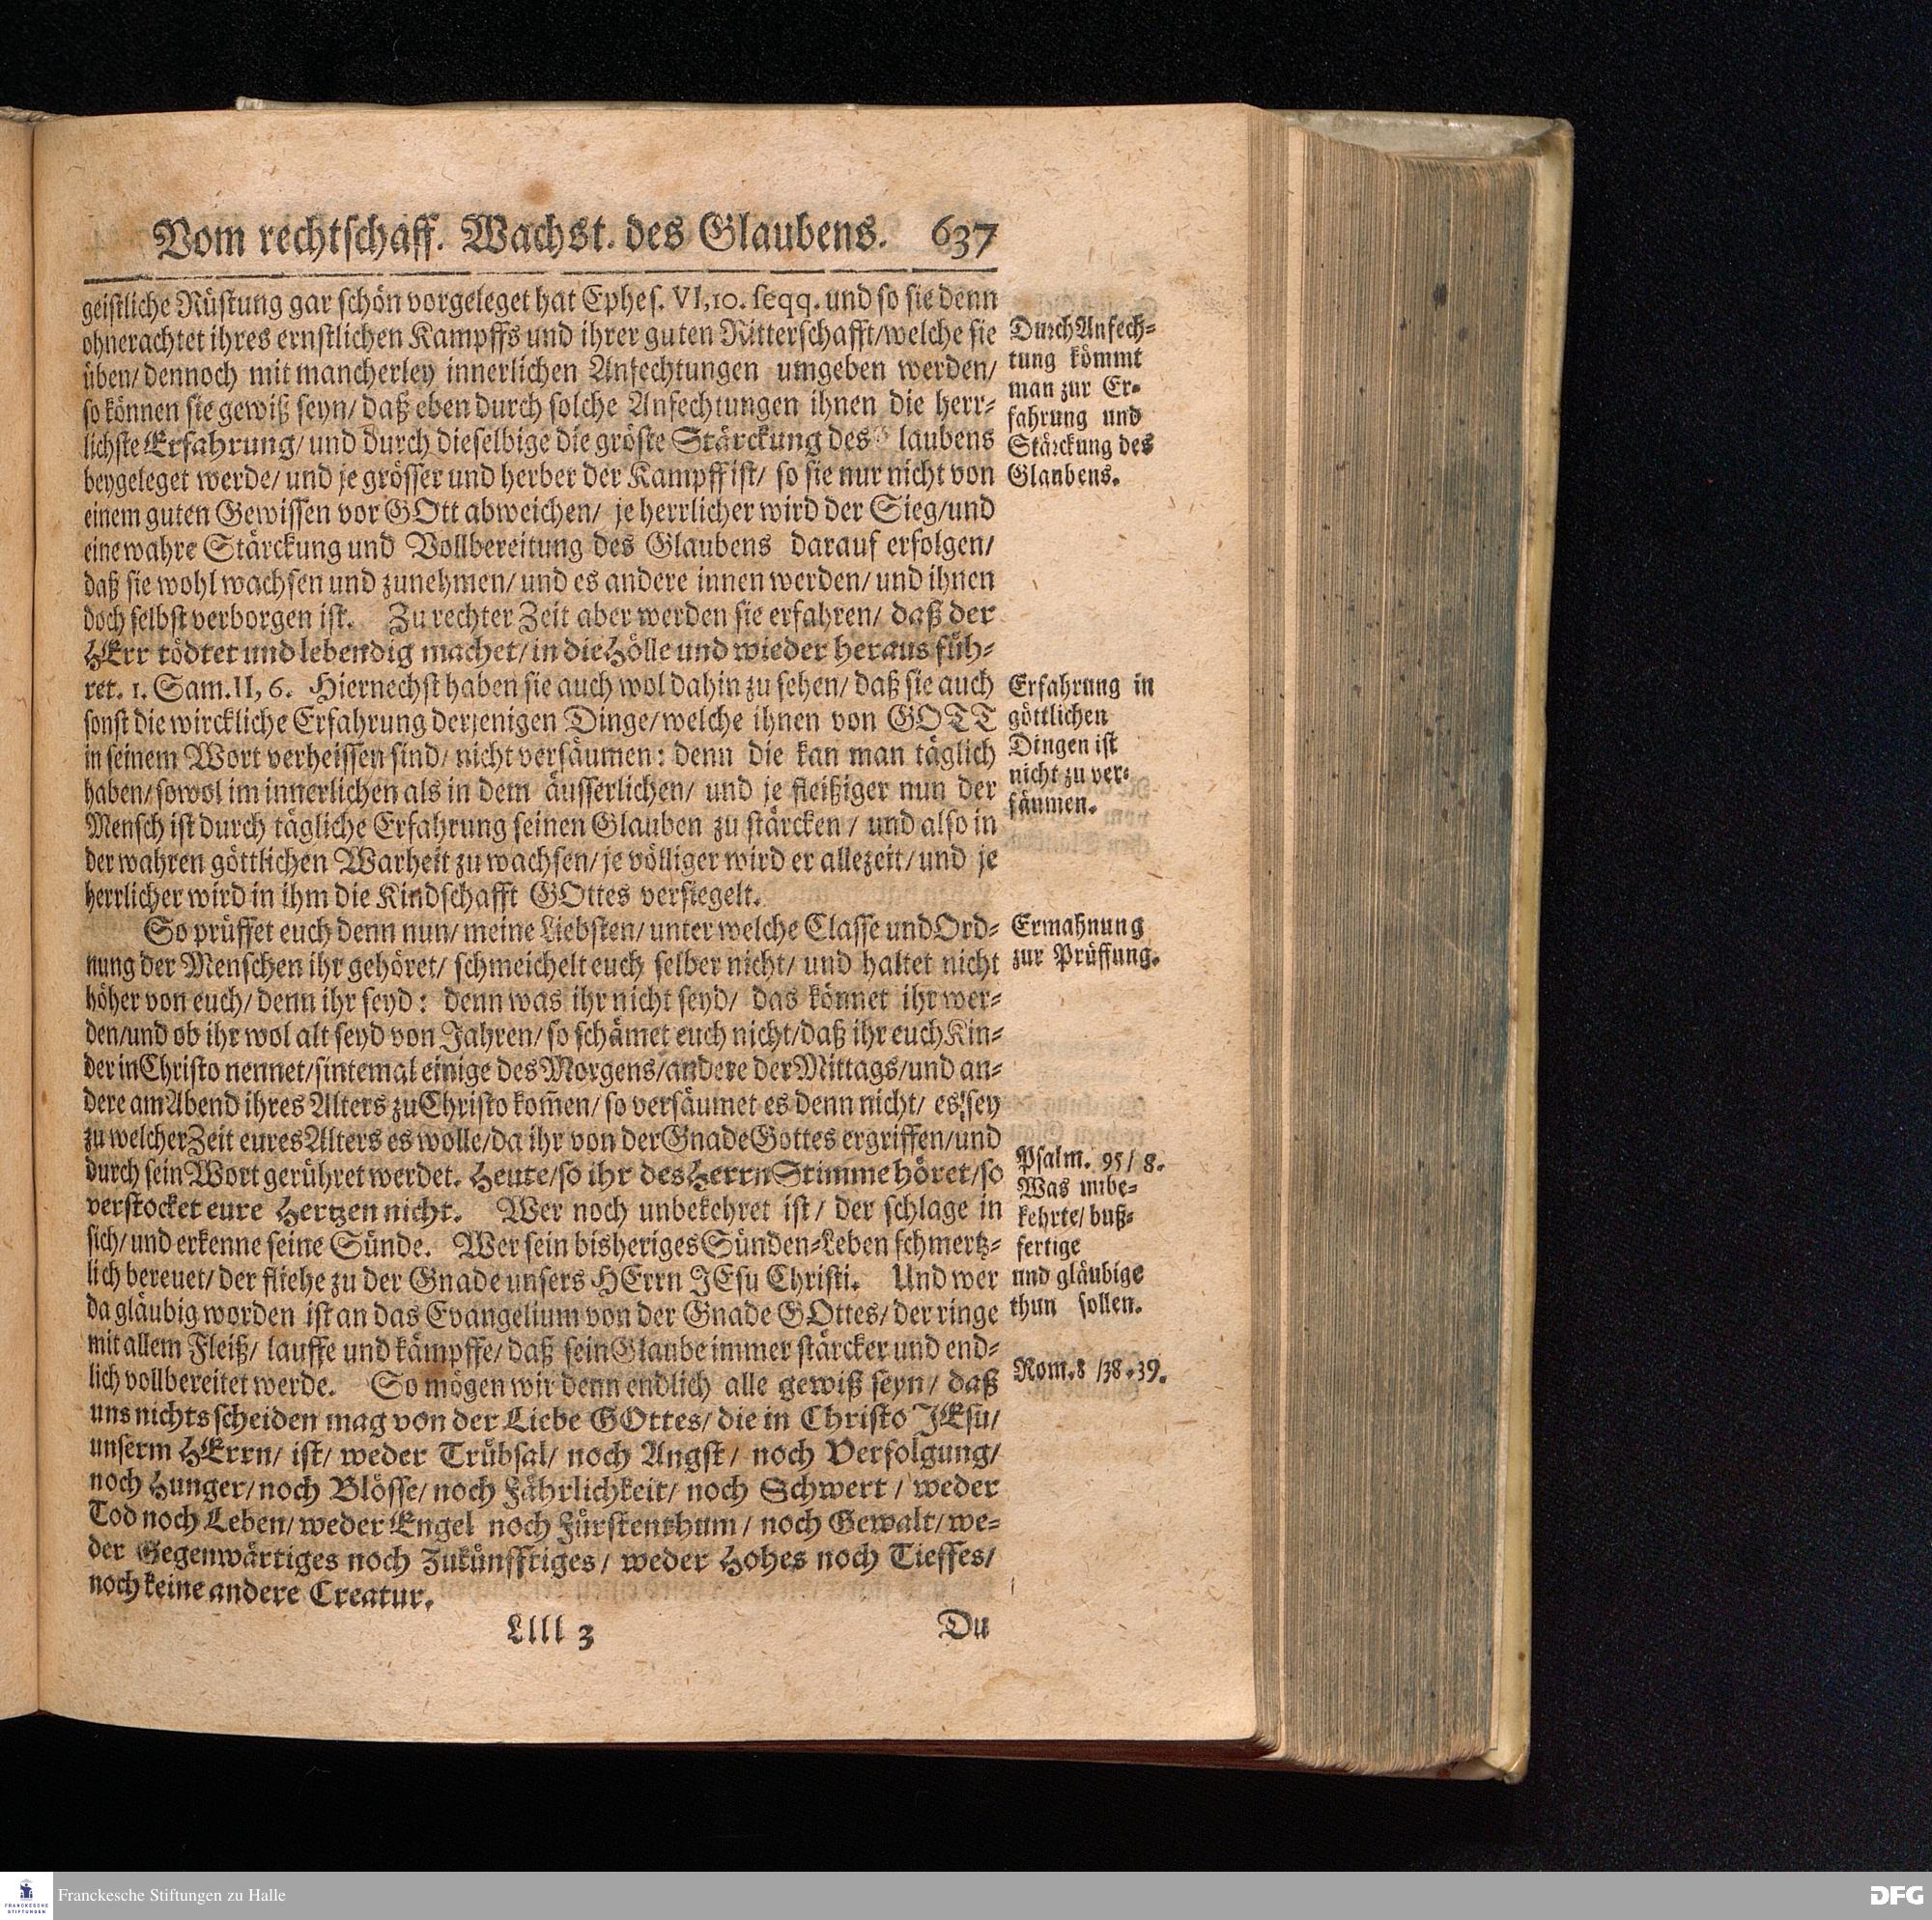 Vom rechtschaff. Wachst. des Glaubens. 637
geistliche Rüstung gar schön vorgeleget hat Ephes. VI, 10. seqq. und so sie denn
ohnerachtet ihres ernstlichen Kampffs und ihrer guten Ritterschafft/ welche sie
üben/ dennoch mit mancherley innerlichen Anfechtungen umgeben werden/
so können sie gewiß seyn/ daß eben durch solche Anfechtungen ihnen die herr-
lichste Erfahrung/ und durch dieselbige die gröste Stärckung des laubens
beygeleget werde/ und je grösser und herber der Kampff ist/ so sie nur nicht von
einem guten Gewissen vor GOtt abweichen/ je herrlicher wird der Sieg/ und
eine wahre Stärckung und Vollbereitung des Glaubens darauf erfolgen/
daß sie wohl wachsen und zunehmen/ und es andere innen werden/ und ihnen
doch selbst verborgen ist. Zu rechter Zeit aber werden sie erfahren/ daß der
HErr tödtet und lebendig machet/ in die Hölle und wieder heraus füh-
ret. 1. Sam. II, 6. Hiernechst haben sie auch wol dahin zu sehen/ daß sie auch
sonst die wirckliche Erfahrung derjenigen Dinge/ welche ihnen von GOTT
in seinem Wort verheissen sind/ nicht versäumen: denn die kan man täglich
haben/ sowol im innerlichen als in dem äusserlichen/ und je fleißiger nun der
Mensch ist durch tägliche Erfahrung seinen Glauben zu stärcken / und also in
der wahren göttlichen Warheit zu wachsen/ je völliger wird er allezeit/ und je
herrlicher wird in ihm die Kindschafft GOttes versiegelt.
So prüffet euch denn nun/ meine Liebsten/ unter welche Classe und Ord-
nung der Menschen ihr gehöret/ schmeichelt euch selber nicht/ und haltet nicht
höher von euch/ denn ihr seyd: denn was ihr nicht seyd/ das könnet ihr wer-
den/ und ob ihr wol alt seyd von Jahren/ so schämet euch nicht/ daß ihr euch Kin-
der in Christo nennet/ sintemal einige des Morgens/ andere der Mittags/ und an-
dere am Abend ihres Alters zu Christo kom̄en/ so versäumet es denn nicht/ es sey
zu welcher Zeit eures Alters es wolle/ da ihr von der Gnade Gottes ergriffen/ und
durch sein Wort gerühret werdet. Heute/ so ihr des Herrn Stimme höret/ so
verstocket eure Hertzen nicht. Wer noch unbekehret ist/ der schlage in
sich/ und erkenne seine Sünde. Wer sein bisheriges Sünden-Leben schmertz-
lich bereuet/ der fliehe zu der Gnade unsers HErrn JEsu Christi. Und wer
da gläubig worden ist an das Evangelium von der Gnade GOttes/ der ringe
mit allem Fleiß/ lauffe und kämpffe/ daß sein Glaube immer stärcker und end-
lich vollbereitet werde. So mögen wir denn endlich alle gewiß seyn/ daß
uns nichts scheiden mag von der Liebe GOttes/ die in Christo JEsu/
unserm HErrn/ ist/ weder Trübsal/ noch Angst/ noch Verfolgung/
noch Hunger/ noch Blösse/ noch Fährlichkeit/ noch Schwert / weder
Tod noch Leben/ weder Engel noch Fürstenthum / noch Gewalt/ we-
der Gegenwärtiges noch Zukünfftiges/ weder Hohes noch Tieffes/
noch keine andere Creatur.
Llll 3
Du
Durch Anfech-
tung kömmt
man zur Er-
fahrung und
Stärckung des
Glaubens.
Erfahrung in
göttlichen
Dingen ist
nicht zu ver-
säumen.
Ermahnung
zur Prüffung.
Psalm. 95/ 8.
Was unbe-
kehrte/ buß-
fertige
und gläubige
thun sollen.
Rom. 8 /38. 39.
FRANCKESCHE
STIFTUNGEN
Franckesche Stiftungen zu Halle
DFG